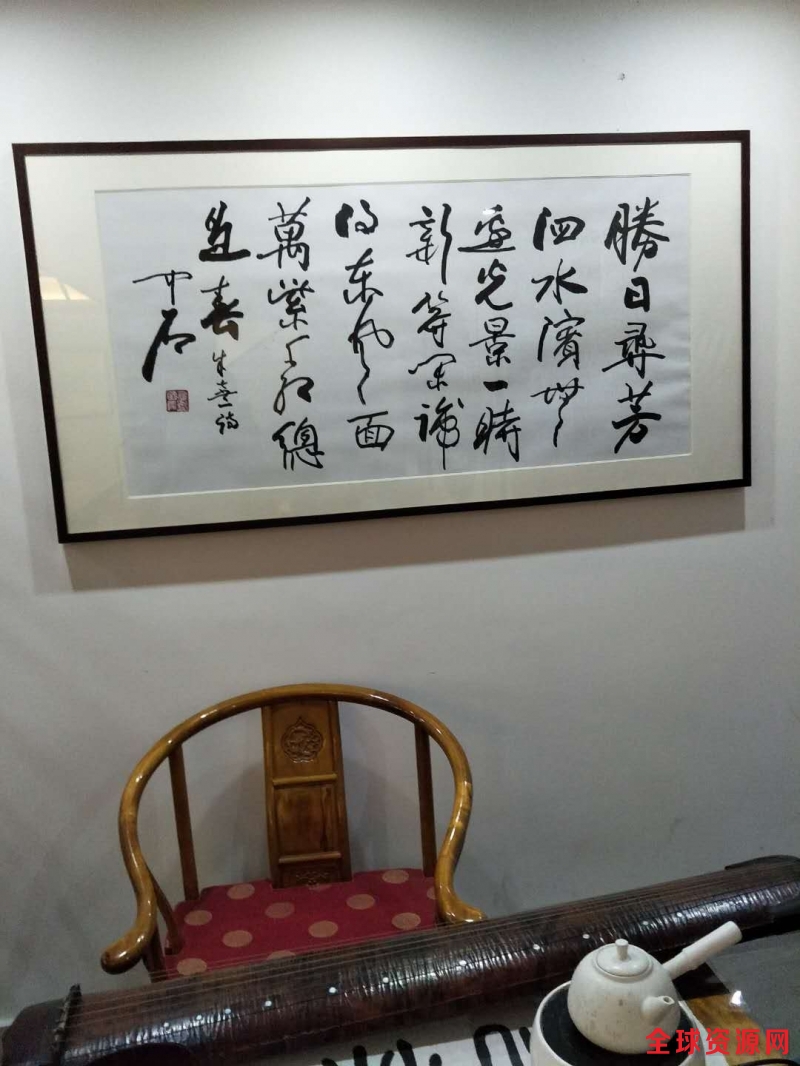 勝日尋芳
泗水濱無
邊光景一時
新等閒識
得东风面
萬紫千红總
是春 朱熹诗
中石
全球资源网